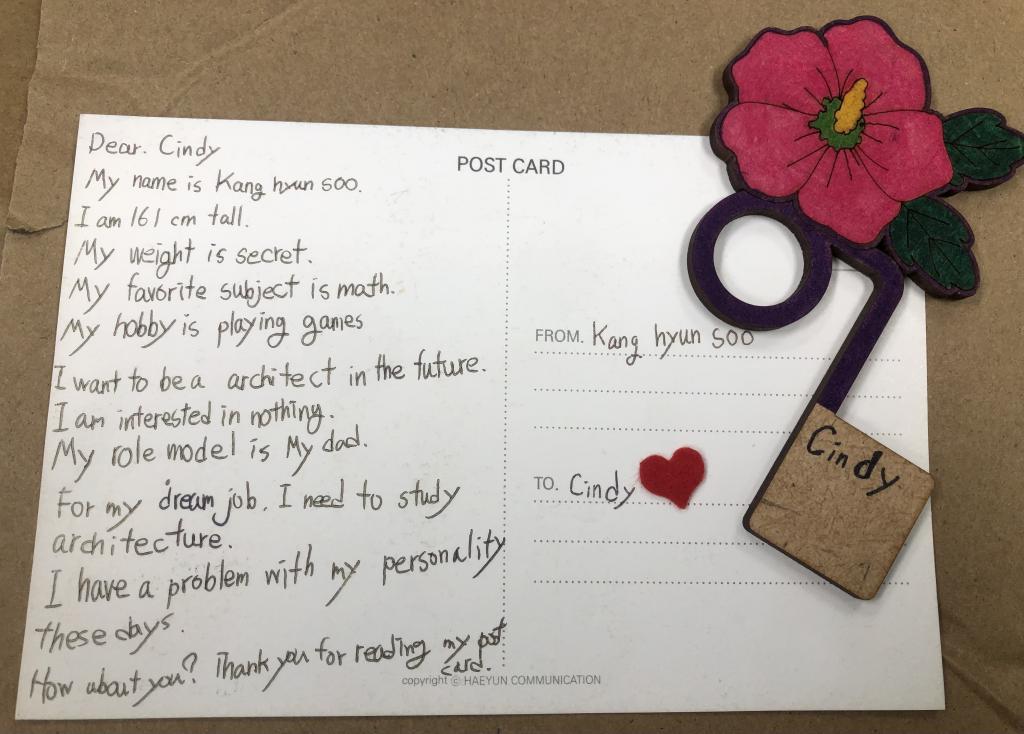 Dear. Cindy
My name is Kang hyun soo.
I am 161 cm tall.
My weight is secret.
My favorite subject is math.
My hobby is playing games
I want to be a architect in the future.
I am interested in nothing.
My role model is My dad.
For my dream job, I need to study
architecture.
I have a problem with my personality
these days.
How about you? Thank you for reading my post
card.
POST CARD
FROM. Kang hyun soo
TO. Cindy
Cindy
copyright ⓒ HAEYUN COMMUNICATION